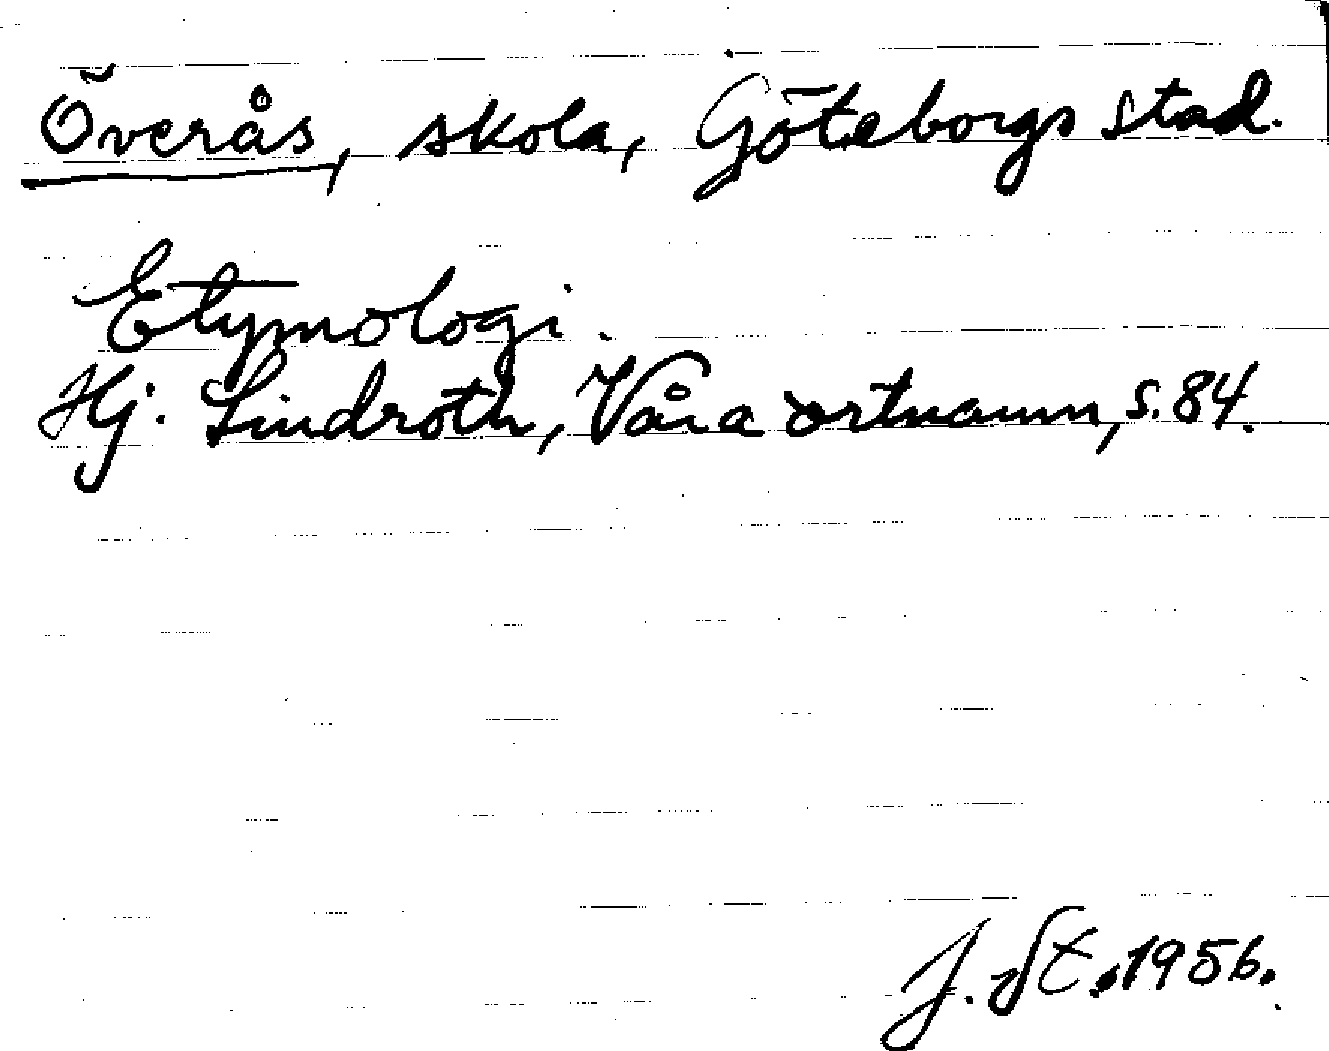 Överås, skola, Göteborgs stad.
Etymologi.
Hj. Lindroth, Våra ortnamn, s. 84.
J. St. 1956.